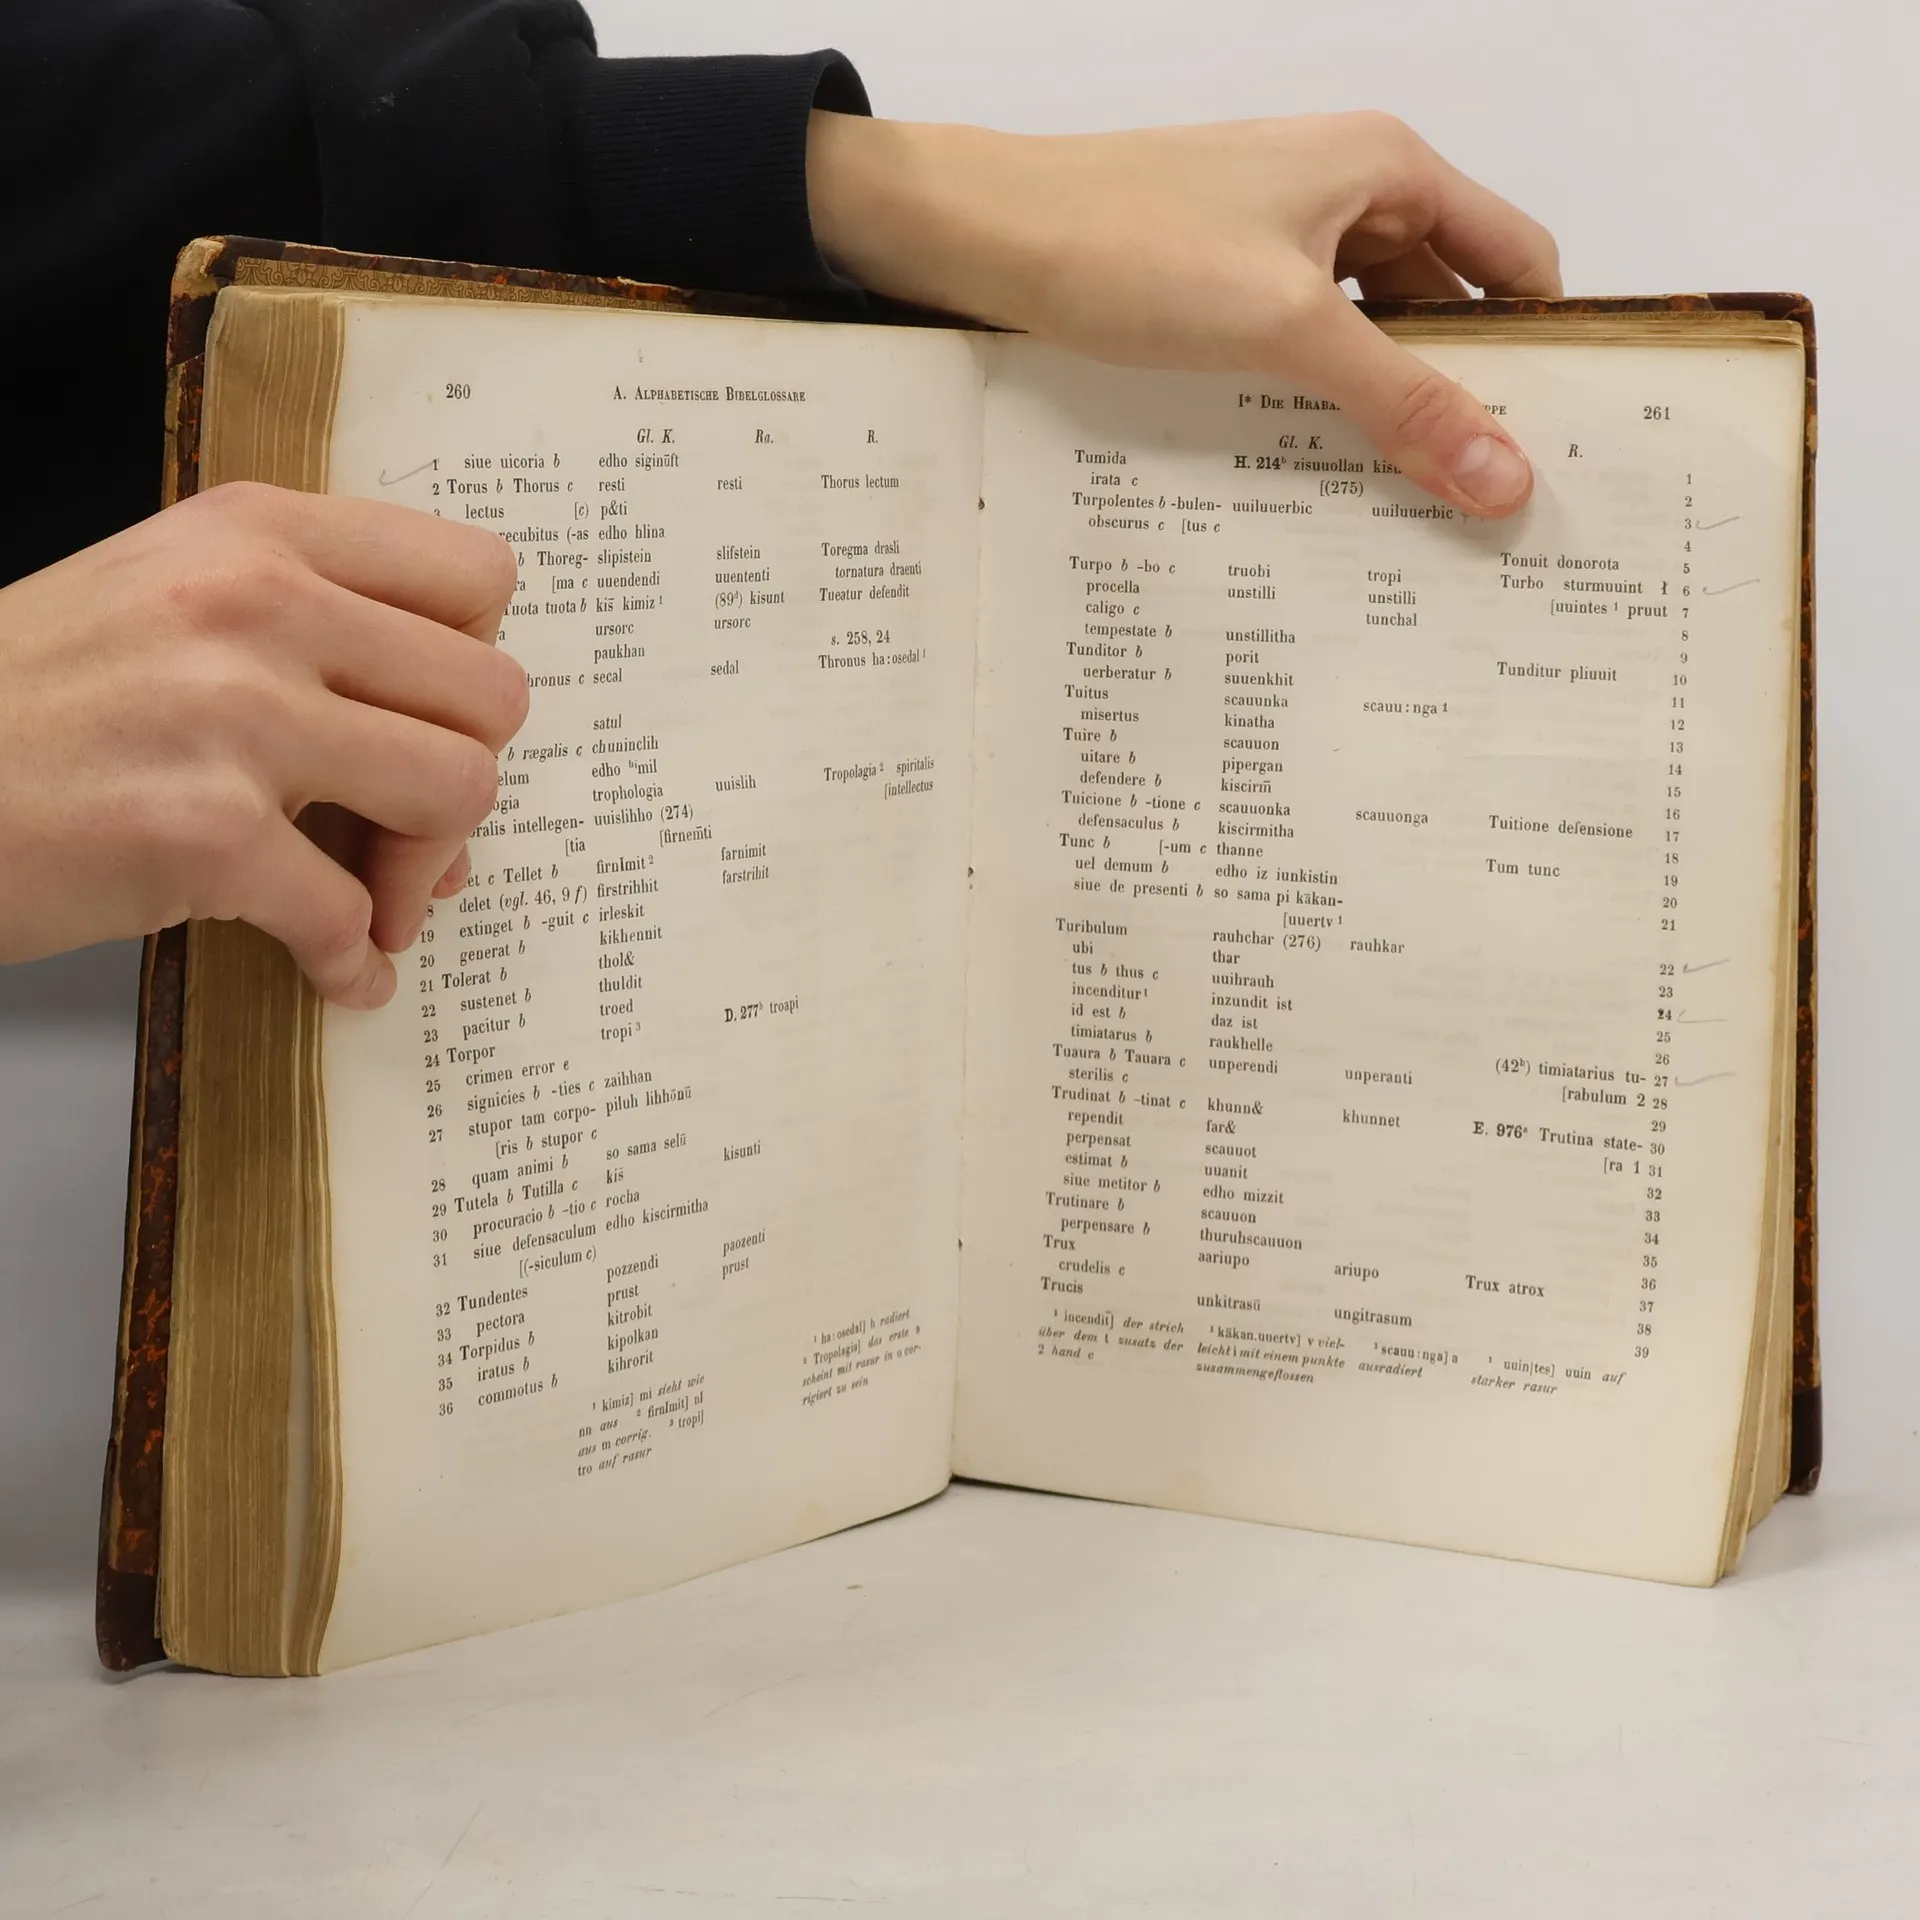 260 A. Alphabetische Bibelglossare
Gl. K. Ra. R.
1 siue uicoria b edho siginūft
2 Torus b Thorus c resti resti Thorus lectum
lectus [c) p&ti
recubitus (-as edho hlina
b Thoreg- slipistein slifstein Toregma drasli
[ma c uuendendi uuententi tornatura draenti
tuota b kis̄ kimiz¹ (89ᵈ) kisunt Tueatur defendit
ursorc ursorc
paukhan s. 258, 24
c secal sedal Thronus ha:osedal¹
satul
b rægalis c chuninclih
edho ᵇⁱmil
trophologia uuislih Tropolagia² spiritalis
intellegen- uuislihho (274) [intellectus
[tia [firnem̄ti
c Tellet b firnImit² farnimit
delet (vgl. 46, 9 f) firstrihhit farstrihit
19 extinget b -guit c irleskit
20 generat b kikhennit
21 Tolerat b thol&
22 sustenet b thuldit
23 pacitur b troed
24 Torpor tropi³ D. 277ᵇ troapi
25 crimen error e
26 signicies b -ties c zaihhan
27 stupor tam corpo- piluh lihhōnū
[ris b stupor c
28 quam animi b so sama selū
29 Tutela b Tutilla c kis̄ kisunti
30 procuracio b -tio c rocha
31 siue defensaculum edho kiscirmitha
[(-siculum c)
32 Tundentes pozzendi paozenti
33 pectora prust prust
34 Torpidus b kitrobit
35 iratus b kipolkan
36 commotus b kihrorit
¹ kimiz] mi sieht wie
nn aus ² firnImit] nI
aus m corrig. ³ tropi]
tro auf rasur
¹ ha:osedal] h radiert
² Tropolagia] das erste
scheint mit rasur in o cor-
rigiert zu sein
I* Die 261
Gl. K. R.
Tumida H. 214ᵇ zisuuollan 1
irata c [(275) 2
Turpolentes b -bulen- uuiluuerbic uuiluuerbic 3
obscurus c [tus c 4
Tonuit donorota 5
Turpo b -bo c truobi tropi Turbo sturmuuint ł 6
procella unstilli unstilli [uuintes ¹ pruut 7
caligo c tunchal 8
tempestate b unstillitha 9
Tunditor b porit Tunditur pliuuit 10
uerberatur b suuenkhit 11
Tuitus scauunka scauu:nga¹ 12
misertus kinatha 13
Tuire b scauuon 14
uitare b pipergan 15
defendere b kiscirm̄ 16
Tuicione b -tione c scauuonka scauuonga Tuitione defensione 17
defensaculus b kiscirmitha 18
Tunc b [-um c thanne Tum tunc 19
uel demum b edho iz iunkistin 20
siue de presenti b so sama pi kākan- 21
[uuertv¹
Turibulum rauhchar (276) rauhkar 22
ubi thar 23
tus b thus c uuihrauh 24
incenditur¹ inzundit ist 25
id est b daz ist 26
timiatarus b raukhelle (42ᵇ) timiatarius tu- 27
Tuaura b Tauara c unperendi unperanti [rabulum 2 28
sterilis c 29
Trudinat b -tinat c khunn& khunnet E. 976ᵃ Trutina state- 30
rependit far& [ra 1 31
perpensat scauuot 32
estimat b uuanit 33
siue metitor b edho mizzit 34
Trutinare b scauuon 35
perpensare b thuruhscauuon 36
Trux aariupo ariupo Trux atrox 37
crudelis c 38
Trucis unkitrasū ungitrasum 39
¹ incendit̄] der strich
über dem t zusatz der
2 hand c
¹ kākan.uuertv] v viel-
leicht i mit einem punkte
zusammengeflossen
¹ scauu:nga] a
ausradiert
¹ uuin|tes] uuin auf
starker rasur